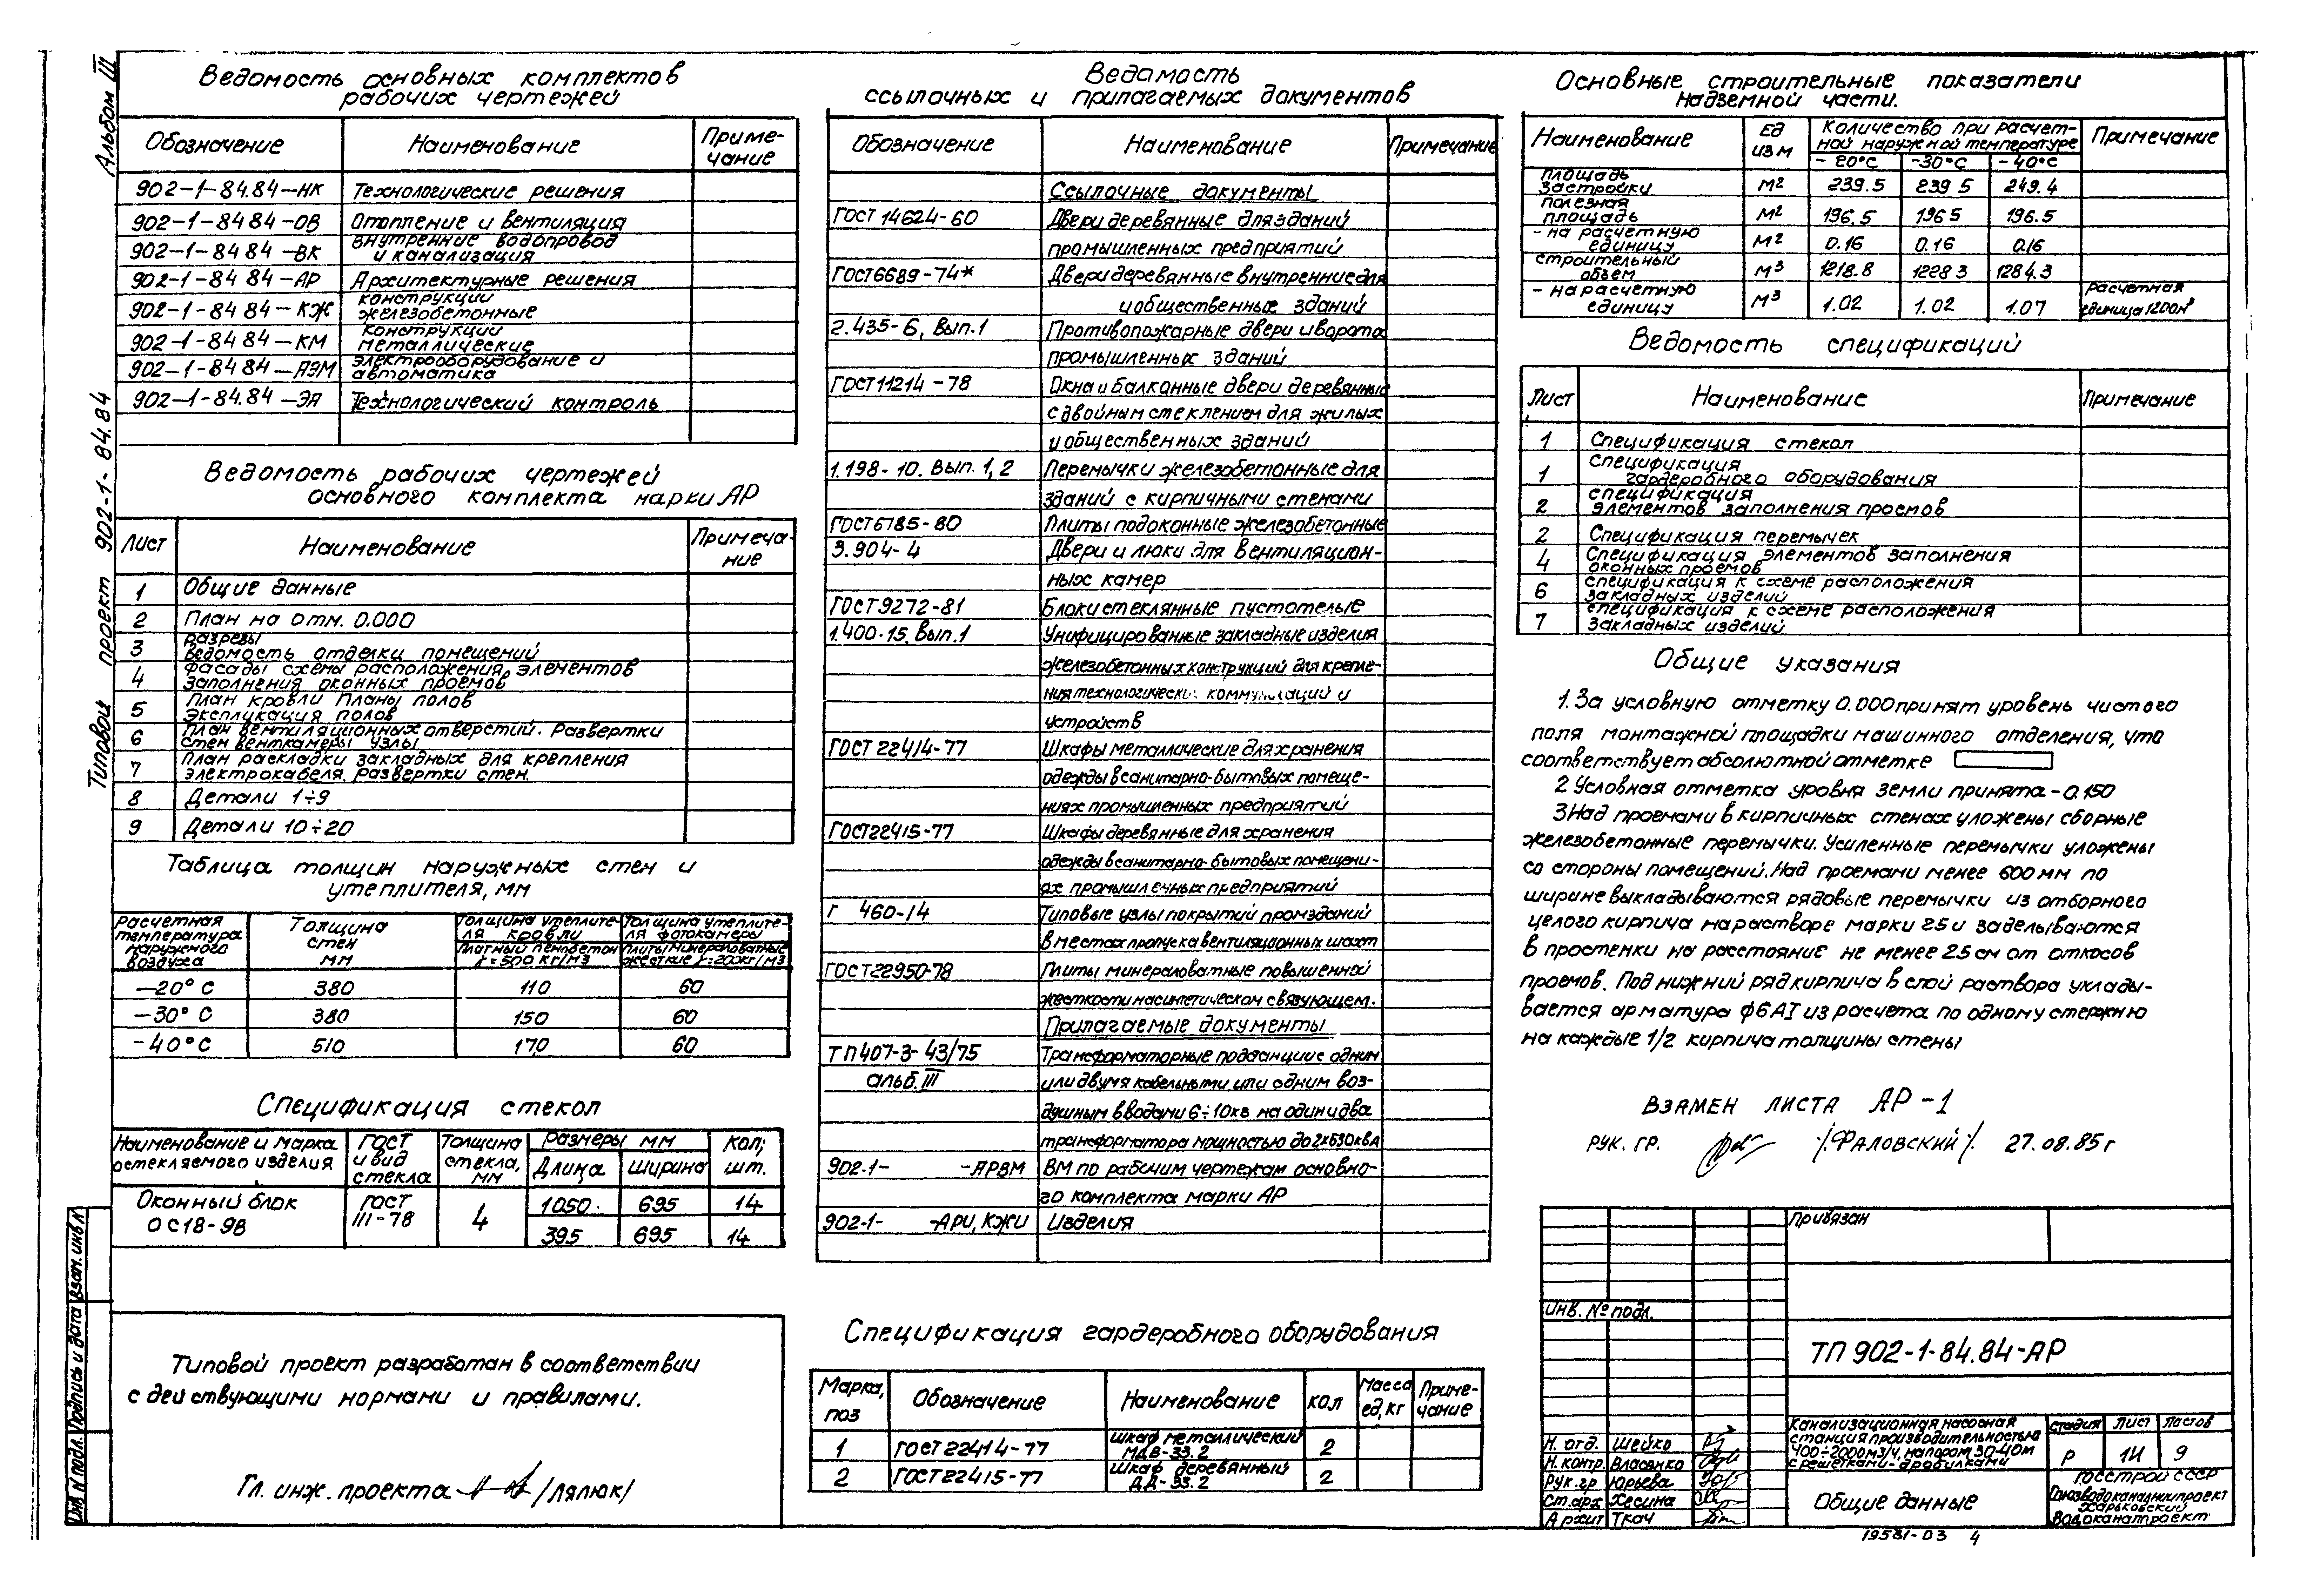 Альбом III
Типовой проект 902-1-84.84
Ведомость основных комплектов
рабочих чертежей
Обозначение Наименование Приме-
чание
902-1-84.84-НК Технологические решения
902-1-84 84-ОВ Отопление и вентиляция
902-1-84 84-ВК Внутренние водопровод
и канализация
902-1-84 84-АР Архитектурные решения
902-1-84 84-КЖ Конструкции
железобетонные
902-1-84 84-КМ Конструкции
металлические
902-1-84 84-АЭМ Электрооборудование и
автоматика
902-1-84.84-ЭА Технологический контроль
Ведомость рабочих чертежей
основного комплекта марки АР
Лист Наименование Примеча-
ние
1 Общие данные
2 План на отм. 0.000
3 Разрезы
Ведомость отделки помещений
4 Фасады схемы расположения элементов
заполнения оконных проемов
5 План кровли Планы полов
Экспликация полов
6 План вентиляционных отверстий. Развертки
стен венткамеры узлы
7 План раскладки закладных для крепления
электрокабеля. Развертки стен.
8 Детали 1÷9
9 Детали 10÷20
Таблица толщин наружных стен и
утеплителя, мм
Расчетная
температура
наружного
воздуха
Толщина
стен
мм
Толщина утеплите-
ля кровли
Плитный пенобетон
γ=500 кг/м3
Толщина утеплите-
ля фотокамеры
Плиты минераловатные
жесткие γ=200кг/м3
-20°С 380 110 60
-30°С 380 150 60
-40°С 510 170 60
Спецификация стекол
Наименование и марка
остекляемого изделия
ГОСТ
и вид
стекла
Толщина
стекла,
мм
Размеры мм
Длина Ширина
Кол,
шт.
Оконный блок
ОС18-9В
ГОСТ
111-78
4
1050 695 14
395 695 14
Типовой проект разработан в соответствии
с действующими нормами и правилами.
Гл. инж. проекта /Лялюк/
Ведомость
ссылочных и прилагаемых документов
Обозначение Наименование Примечание
Ссылочные документы
ГОСТ 14624-60 Двери деревянные для зданий
промышленных предприятий
ГОСТ6689-74* Двери деревянные внутренние для
и общественных зданий
2.435-6, Вып.1 Противопожарные двери и ворота
промышленных зданий
ГОСТ11214-78 Окна и балконные двери деревянные
с двойным стеклением для жилых
и общественных зданий
1.198-10. Вып. 1, 2 Перемычки железобетонные для
зданий с кирпичными стенами
ГОСТ6785-80 Плиты подоконные железобетонные
3.904-4 Двери и люки для вентиляцион-
ных камер
ГОСТ9272-81 Блоки стеклянные пустотелые
1.400-15. Вып.1 Унифицированные закладные изделия
железобетонных конструкций для крепле-
ния технологических коммуникаций и
устройств
ГОСТ 22414-77 Шкафы металлические для хранения
одежды в санитарно-бытовых помеще-
ниях промышленных предприятий
ГОСТ22415-77 Шкафы деревянные для хранения
одежды в санитарно-бытовых помещени-
ях промышленных предприятий
Г 460-14 Типовые узлы покрытий промзданий
в местах пропуска вентиляционных шахт
ГОСТ22950-78 Плиты минераловатные повышенной
жесткости на синтетическом связующем.
Прилагаемые документы
ТП407-3-43/75 Трансформаторные подстанции с одним
альб. III или двумя кабельными или одним воз-
душным вводами 6÷10кв на один и два
трансформатора мощностью до 2×630кВА
902-1- -АРВМ ВМ по рабочим чертежам основно-
го комплекта марки АР
902-1- -АРИ, КЖИ Изделия
Спецификация гардеробного оборудования
Марка,
поз
Обозначение Наименование Кол Масса
ед, кг
Приме-
чание
1 ГОСТ22414-77 Шкаф металлический
МДВ-33.2 2
2 ГОСТ22415-77 Шкаф деревянный
ДД-33.2 2
Основные строительные показатели
надземной части.
Наименование Ед
изм
Количество при расчет-
ной наружной температуре
-20°С -30°С -40°С
Примечание
Площадь
застройки М² 239.5 239 5 249.4
Полезная
площадь М² 196.5 196 5 196.5
- на расчетную
единицу М² 0.16 0.16 0.16
Строительный
объем М³ 1218.8 1228 3 1284.3
- на расчетную
единицу М³ 1.02 1.02 1.07 Расчетная
единица 1200м³
Ведомость спецификаций
Лист Наименование Примечание
1 Спецификация стекол
1 Спецификация
гардеробного оборудования
2 Спецификация
элементов заполнения проемов
2 Спецификация перемычек
4 Спецификация элементов заполнения
оконных проемов
6 Спецификация к схеме расположения
закладных изделий
7 Спецификация к схеме расположения
закладных изделий
Общие указания
1. За условную отметку 0.000 принят уровень чистого
пола монтажной площадки машинного отделения, что
соответствует абсолютной отметке
2 Условная отметка уровня земли принята -0.150
3 Над проемами в кирпичных стенах уложены сборные
железобетонные перемычки. Усиленные перемычки уложены
со стороны помещений. Над проемами менее 600 мм по
ширине выкладываются рядовые перемычки из отборного
целого кирпича на растворе марки 25 и заделываются
в простенки на расстояние не менее 25 см от откосов
проемов. Под нижний ряд кирпича в слой раствора уклады-
вается арматура ф6АI из расчета по одному стержню
на каждые 1/2 кирпича толщины стены
ВЗАМЕН ЛИСТА АР-1
РУК. ГР. /ФАЛОВСКИЙ/ 27.08.85г
Привязан
Инв. № подл.
ТП 902-1-84.84-АР
Канализационная насосная
станция производительностью
400÷2000м3/ч, напором 30-40м
с решетками-дробилками
Стадия Лист Листов
Р 1И 9
Н. отд. Шейко
Н. контр. Власенко
Рук. гр Юрьева
Ст. арх Хесина
Архит Ткач
Общие данные
Госстрой СССР
Союзводоканалниипроект
Харьковский
Водоканалпроект
19581-03 4
Инв. N подл. Подпись и дата Взам. инв N